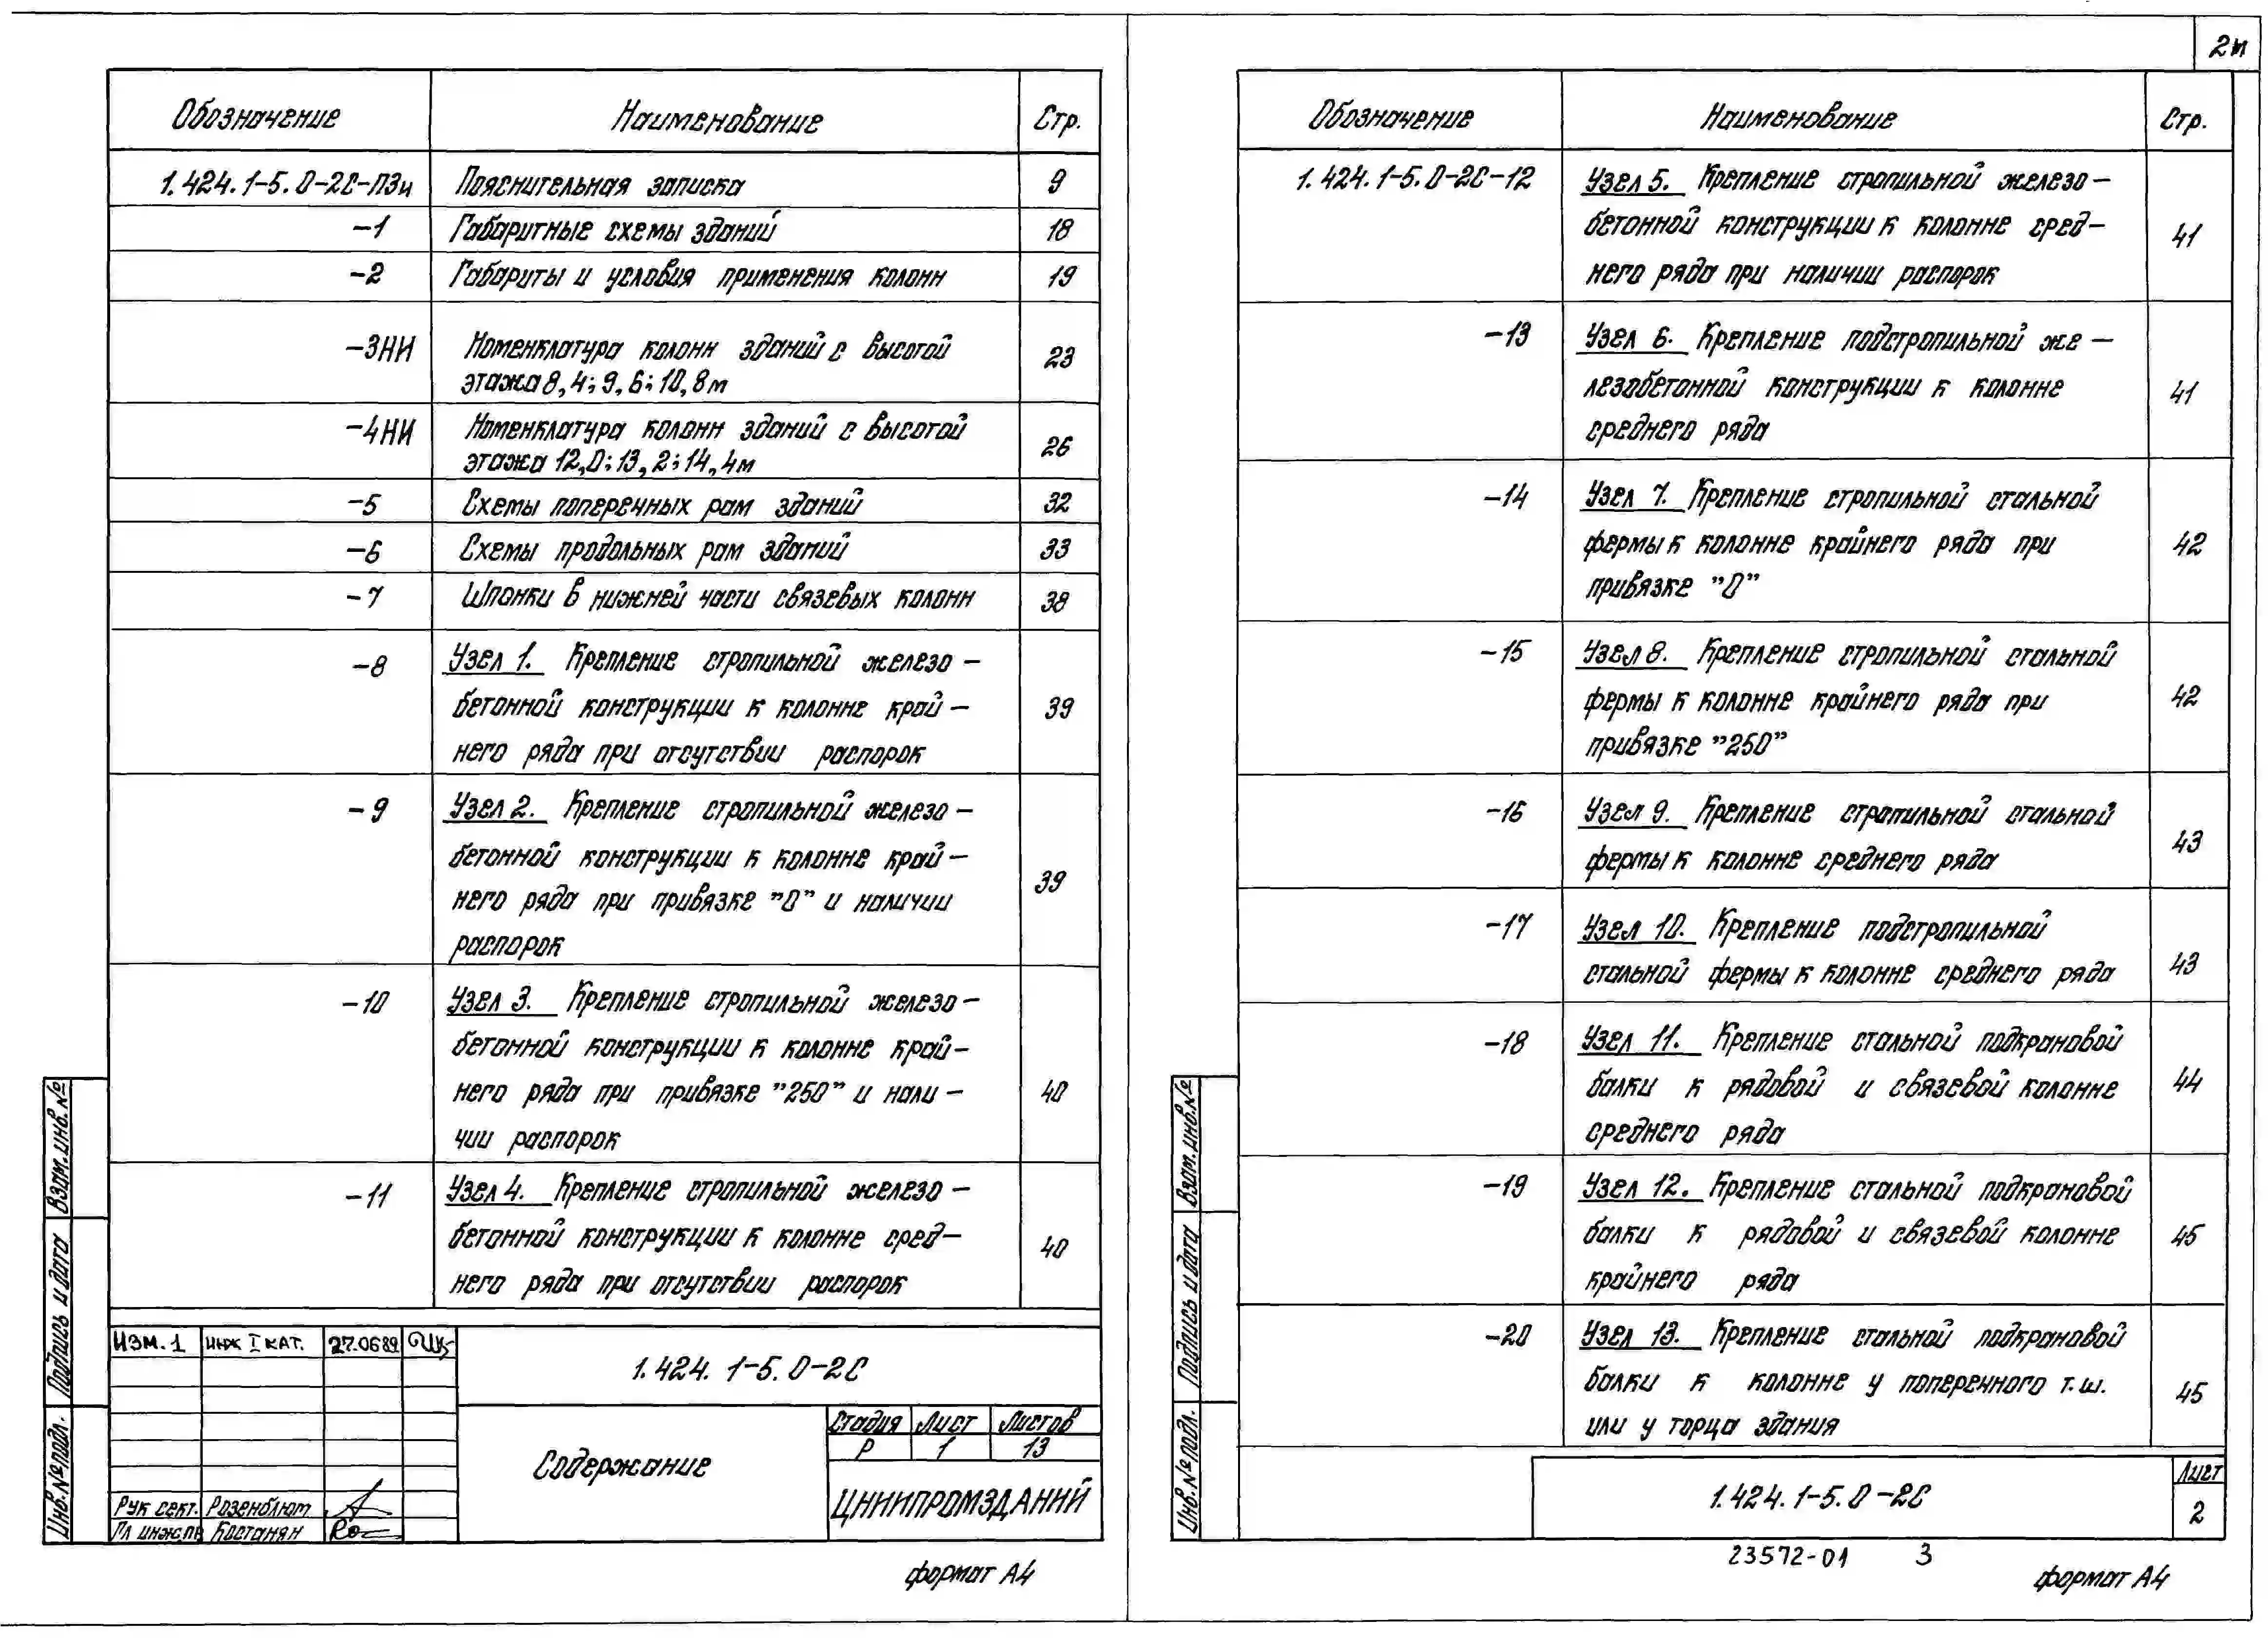 Обозначение Наименование Стр.
1.424.1-5.0-2С-ПЗи Пояснительная записка 9
-1 Габаритные схемы зданий 18
-2 Габариты и условия применения колонн 19
-3НИ Номенклатура колонн зданий с высотой
этажа 8,4; 9,6; 10,8м 23
-4НИ Номенклатура колонн зданий с высотой
этажа 12,0; 13,2; 14,4м 26
-5 Схемы поперечных рам зданий 32
-6 Схемы продольных рам зданий 33
-7 Шпонки в нижней части связевых колонн 38
-8 Узел 1. Крепление стропильной железо-
бетонной конструкции к колонне край- 39
него ряда при отсутствии распорок
-9 Узел 2. Крепление стропильной железо-
бетонной конструкции к колонне край-
него ряда при привязке "0" и наличии 39
распорок
-10 Узел 3. Крепление стропильной железо-
бетонной конструкции к колонне край-
него ряда при привязке "250" и нали- 40
чии распорок
-11 Узел 4. Крепление стропильной железо-
бетонной конструкции к колонне сред- 40
него ряда при отсутствии распорок
Взам. инв. №
Подпись и дата
Инв. № подл.
Изм. 1 инж I кат. 27.06.89
1.424.1-5.0-2С
Содержание
Стадия Лист Листов
Р 1 13
ЦНИИПРОМЗДАНИЙ
Рук сект. Розенблюм
Гл инж.пр Костанян
формат А4
2и
Обозначение Наименование Стр.
1.424.1-5.0-2С-12 Узел 5. Крепление стропильной железо-
бетонной конструкции к колонне сред- 41
него ряда при наличии распорок
-13 Узел 6. Крепление подстропильной же-
лезобетонной конструкции к колонне 41
среднего ряда
-14 Узел 7. Крепление стропильной стальной
фермы к колонне крайнего ряда при 42
привязке "0"
-15 Узел 8. Крепление стропильной стальной
фермы к колонне крайнего ряда при 42
привязке "250"
-16 Узел 9. Крепление стропильной стальной
фермы к колонне среднего ряда 43
-17 Узел 10. Крепление подстропильной
стальной фермы к колонне среднего ряда 43
-18 Узел 11. Крепление стальной подкрановой
балки к рядовой и связевой колонне 44
среднего ряда
-19 Узел 12. Крепление стальной подкрановой
балки к рядовой и связевой колонне 45
крайнего ряда
-20 Узел 13. Крепление стальной подкрановой
балки к колонне у поперечного т.ш. 45
или у торца здания
Взам. инв. №
Подпись и дата
Инв. № подл.
1.424.1-5.0-2С
Лист
2
23572-01 3
формат А4